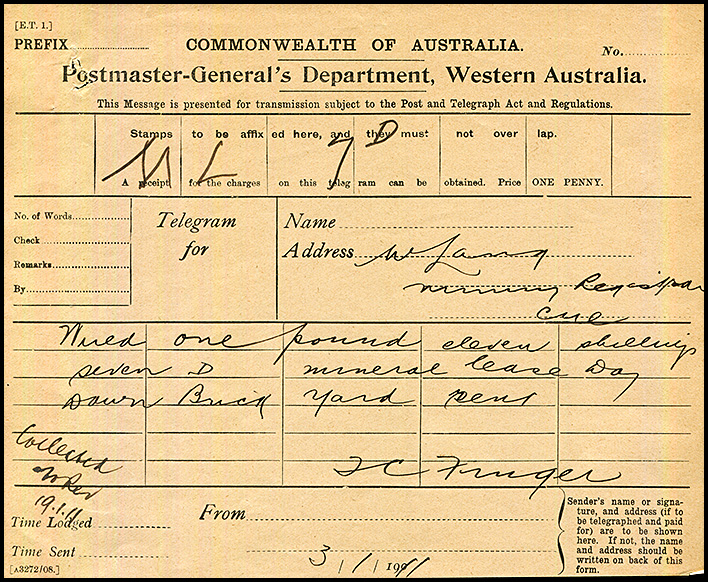 [E.T. 1.]
PREFIX
COMMONWEALTH OF AUSTRALIA.
No.
Postmaster-General's Department, Western Australia.
This Message is presented for transmission subject to the Post and Telegraph Act and Regulations.
Stamps to be affixed here, and they must not over lap.
M L 7 D
A receipt for the charges on this telegram can be obtained. Price ONE PENNY.
No. of Words
Check
Remarks
By
Telegram
for
Name
Address W Lang
mining Registrar
Cue
Wired one pound eleven shillings
seven D mineral lease Day
Dawn Brick Yard rent
Collected
19.1.11
T C Finger
Time Lodged
From
Time Sent
3/1/1911
[A3272/08.]
Sender's name or signa-
ture, and address (if to
be telegraphed and paid
for) are to be shown
here. If not, the name
and address should be
written on back of this
form.